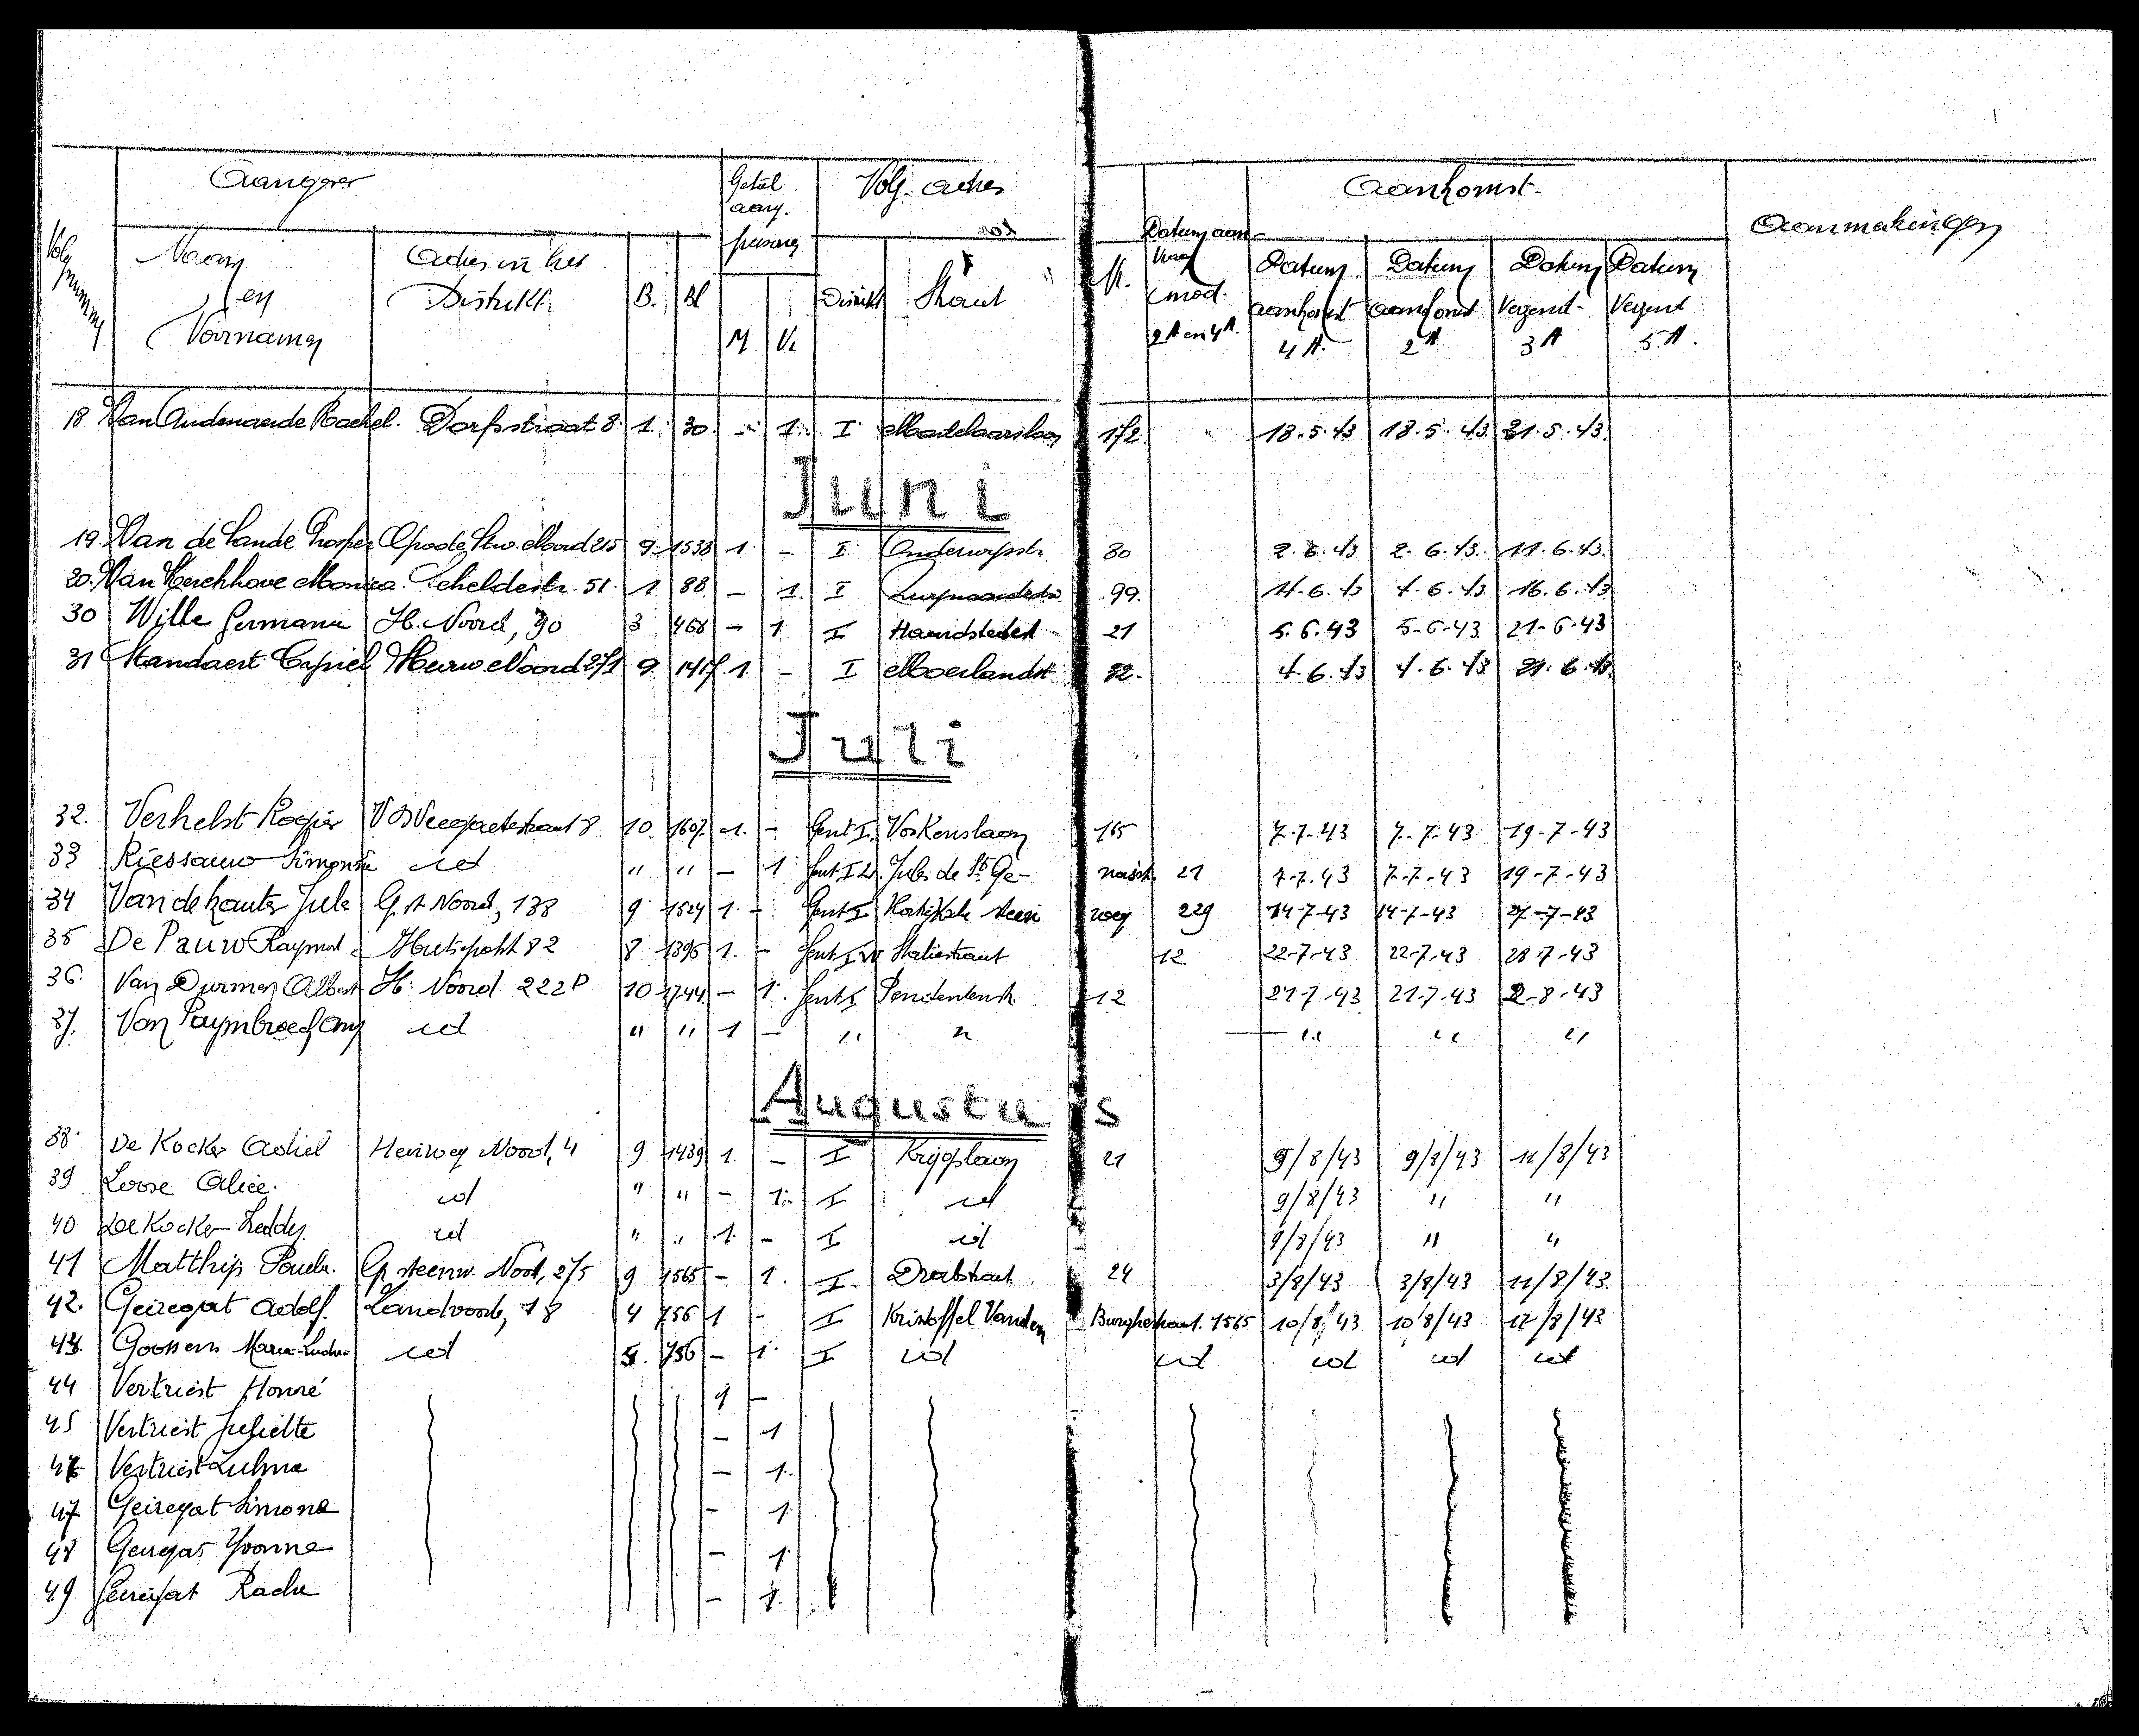 Aangever Getal aang. Volg. adres Aankomst. Aanmerkingen
Volg nummer Naam en Voornamen Adres in het Distrikt. B. Bl M V. Distrikt Straat N. Datum aanvraag mod. 2A en 4A. Datum aankomst 4A. Datum aankomst 2A Datum Verzend. 3A Datum Verzend 5.A.
18 Van Oudenaerde Rachel. Dorpstraat 8. 1. 30. - 1. I 172. 18.5.43 18.5.43. 31.5.43.
Juni
19. Van de Sande Prosper 215 9. 1538 1. - I. Onderwijsstr. 30 2.6.43 2.6.43. 11.6.43.
20. Van Kerchhove Monica. Scheldestr. 51. 1. 88. - 1. I 99. 4.6.43 16.6.43
30 Wille Germana H. Noord, 90 3 468 - 1. I 21 5.6.43 5-6-43 21-6-43
31 Standaert Cyriel Heirw. Noord 271 9. 1417. 1. - I Moerlandstr. 32. 4.6.43 4.6.43 21.6.43.
Juli
32. Verhelst Rogier 8 10. 1607. 1. - Gent I. Voskenslaan 165 7.7.43 7.7.43 19-7-43
33 Riessauw Simonne id " " - 1 Jules de St. Ge- 21 7.7.43 7.7.43 19-7-43
34 Jules G. st Noord, 138 9 1524 1. - Gent I Kortrijksche steen weg 229 14-7-43 14-7-43 27-7-43
35 De Pauw Raymond Hutsepot 82 8 1396 1. - Statiestraat 12. 22-7-43 22-7-43 28-7-43
36. Van Durmen Albert H. Noord 222 D 10 1744 - 1. Gent I 12 21-7-43 21-7-43 2-8-43
37. Van id " " 1 - " " " " "
Augustus
38. De Kocker Achiel Heirweg Noord, 4 9 1439 1. - I Krijgslaan 21 9/8/43 9/8/43 11/8/43
39 Loose Alice. id " " - 1. I id 9/8/43 " "
40 De Kocker Freddy. id " " 1. - I id 9/8/43 " "
41 Matthijs Paula. G. steenw. Noord, 275 9 1565 - 1. I. Drabstraat. 24 3/8/43 3/8/43 11/8/43.
42. Geiregat Adolf. Zandvoorde, 18 4 756 1 - I Kristoffel Vanden Burghestraat. 1565 10/8/43 10/8/43 12/8/43
43. Goossens Maria- id 756 - 1. I id id id id id
44 Vertriest Honoré 1 -
45 Vertriest Juliette - 1
Vertriest - 1.
47 Geiregat Simone - 1.
48 Geiregat Yvonne - 1.
49 Geiregat - 1.